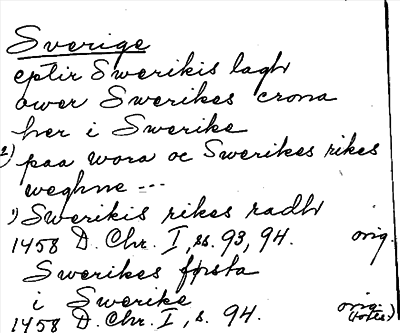 Sverige
eptir Swerikis lagh
ower Swerikes crona
her i Swerike
2) paa wora oc Swerikes rikes
weghne ---
1) Swerikis rikes radh
1458 D. Chr. I, ss. 93, 94. orig.
Swerikes førsta
i Swerike
1458 D. Chr. I, s. 94. orig.